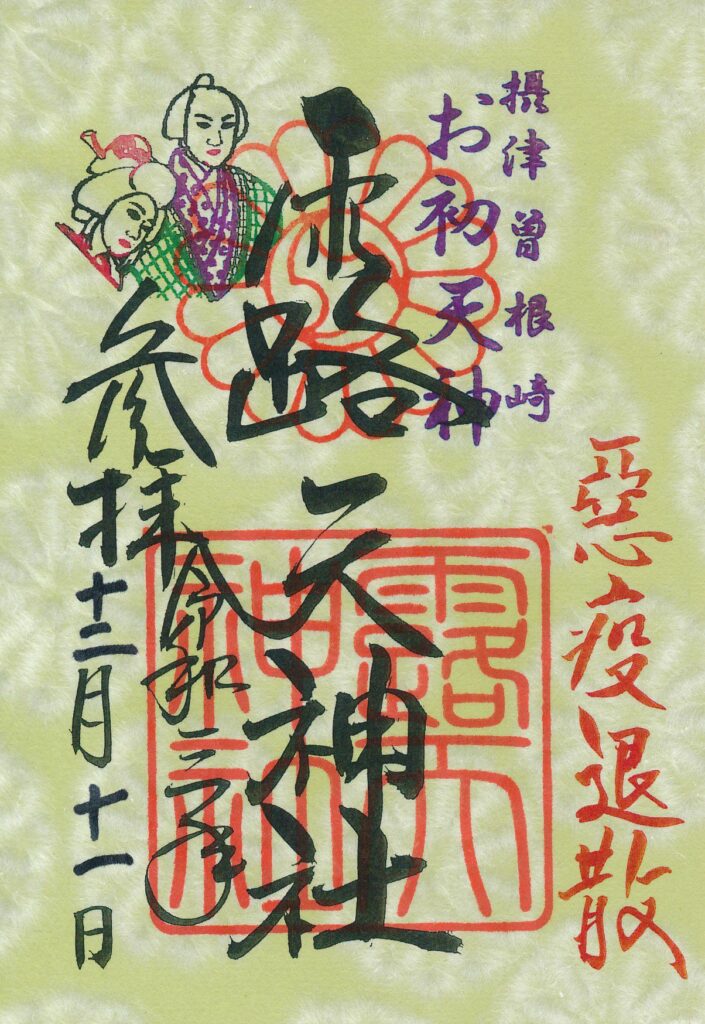 摂津曽根崎
お初天神
悪疫退散
露天神社
露天
神社
参拝
令和三年
十二月十一日